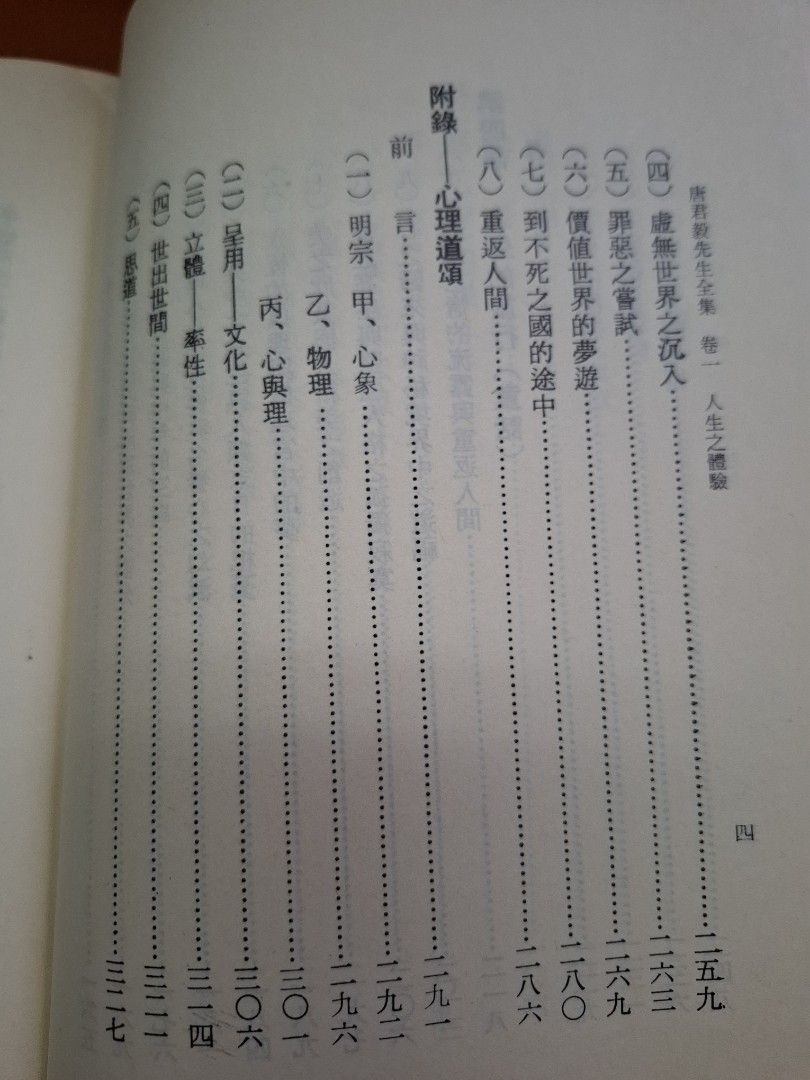 唐君毅先生全集 卷一 人生之體驗
四
（四）虛無世界之沉入……二五九
（五）罪惡之嘗試……二六三
（六）價值世界的夢遊……二六九
（七）到不死之國的途中……二八〇
（八）重返人間……二八六
附錄——心理道頌
前 言……二九一
（一）明宗 甲、心象……二九二
乙、物理……二九六
丙、心與理……三〇一
（二）呈用——文化……三〇六
（三）立體——率性……三一四
（四）世出世間……三二一
（五）思道……三二七